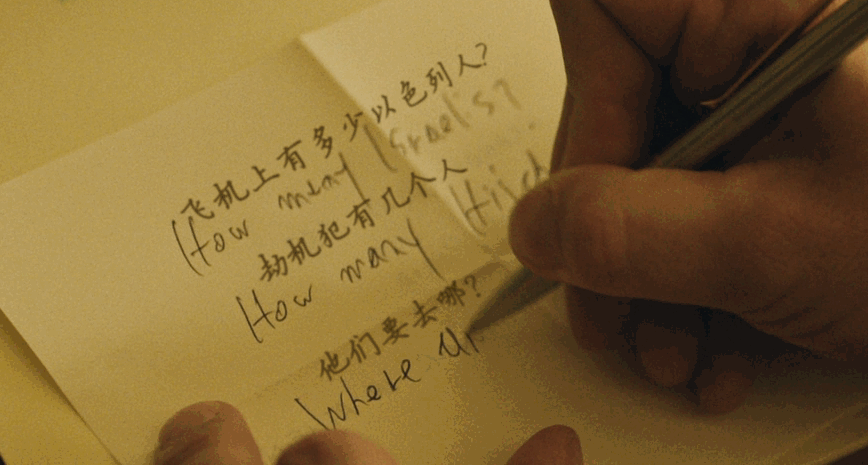 飞机上有多少以色列人?
How many Israelis?
劫机犯有几个人
How many Hijac
他们要去哪?
Where a